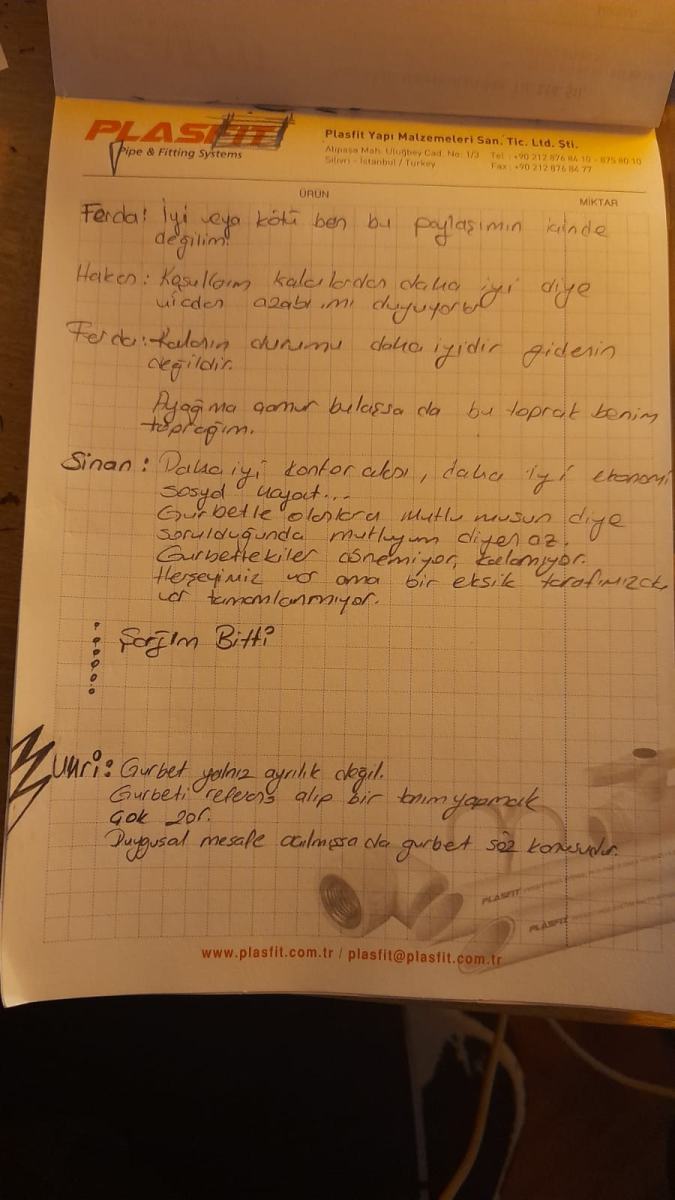 PLASFİT
Pipe & Fitting Systems
Plasfit Yapı Malzemeleri San. Tic. Ltd. Şti.
Alipaşa Mah. Uluğbey Cad. No: 1/3 Tel : +90 212 876 84 10 - 875 80 10
Silivri - İstanbul / Turkey Fax : +90 212 876 84 77
ÜRÜN MİKTAR
Ferda: İyi veya kötü ben bu paylaşımın içinde
değilim.
Hakan: Koşullarım kalanlardan daha iyi diye
vicdan azabı mı duyuyorsun
Ferda: Kalanın durumu daha iyidir gidenin
değildir.
Ayağıma çamur bulaşsa da bu toprak benim
toprağım.
Sinan: Daha iyi konfor aksı, daha iyi ekonomi
sosyal hayat...
Gurbette olanlara mutlu musun diye
sorulduğunda mutluyum diyen az.
Gurbettekiler dönemiyor, kalamıyor.
Herşeyimiz var ama bir eksik tarafımızda
var tamamlanmıyor.
Şarjım Bitti
Nuri: Gurbet yalnız ayrılık değil.
Gurbeti referans alıp bir tanım yapmak
çok zor.
Duygusal mesafe açılmışsa da gurbet söz konusudur.
PLASFIT
PLASFIT
www.plasfit.com.tr / plasfit@plasfit.com.tr